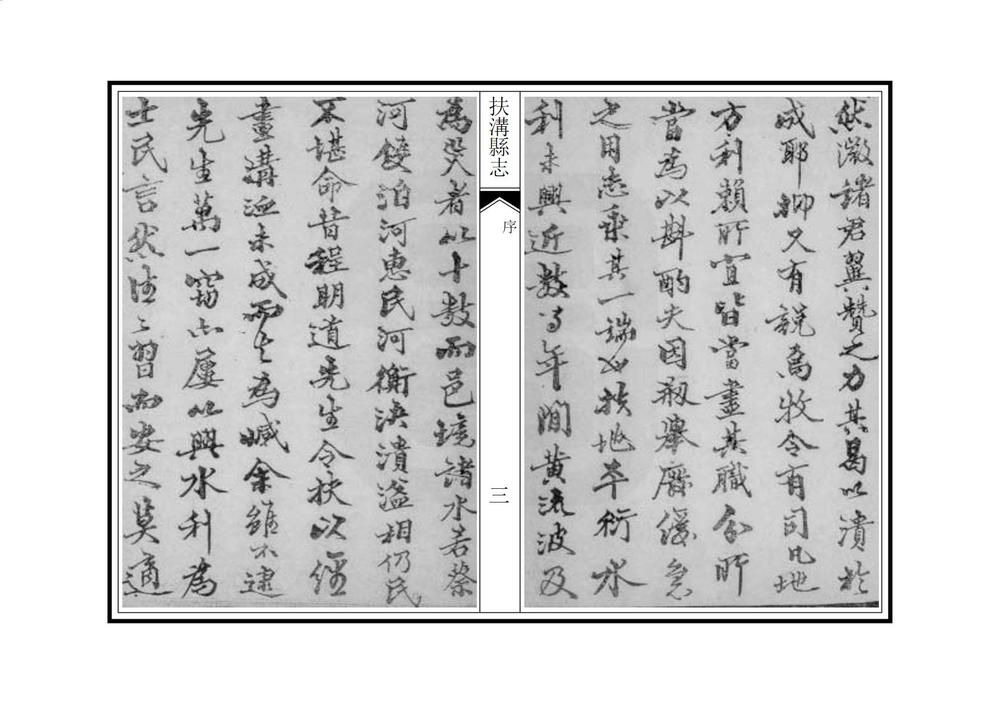 然溦諸君翼贊之力其曷以潰於
成耶抑又有說焉牧令有司凡地
方利賴所宜皆當盡其職分所
當為以斟酌夫因革舉廢緩急
之用志乘其一端也扶地平衍水
利未興近數十年間黃流波及
扶溝縣志
序
三
為災者以十數而邑境諸水若蔡
河雙洎河惠民河衡決潰溢相仍民
不堪命昔程明道先生令扶以經
畫溝洫未成而去為憾余雖不逮
先生萬一竊亦屢以興水利為
士民言然法之習而安之莫適